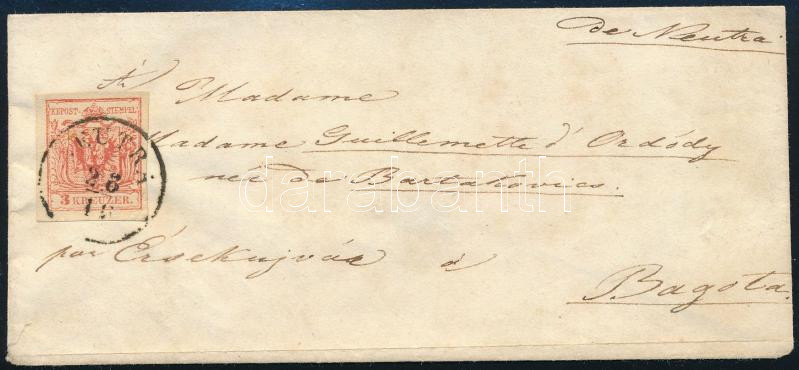 de Neutra
À Madame
Madame Guillemette d'Ordódy
née de Bartakovics.
par Érsekujvár à
Bagota.
KK POST-STEMPEL
3 KREUZER.
NEUTRA
28
darabanth